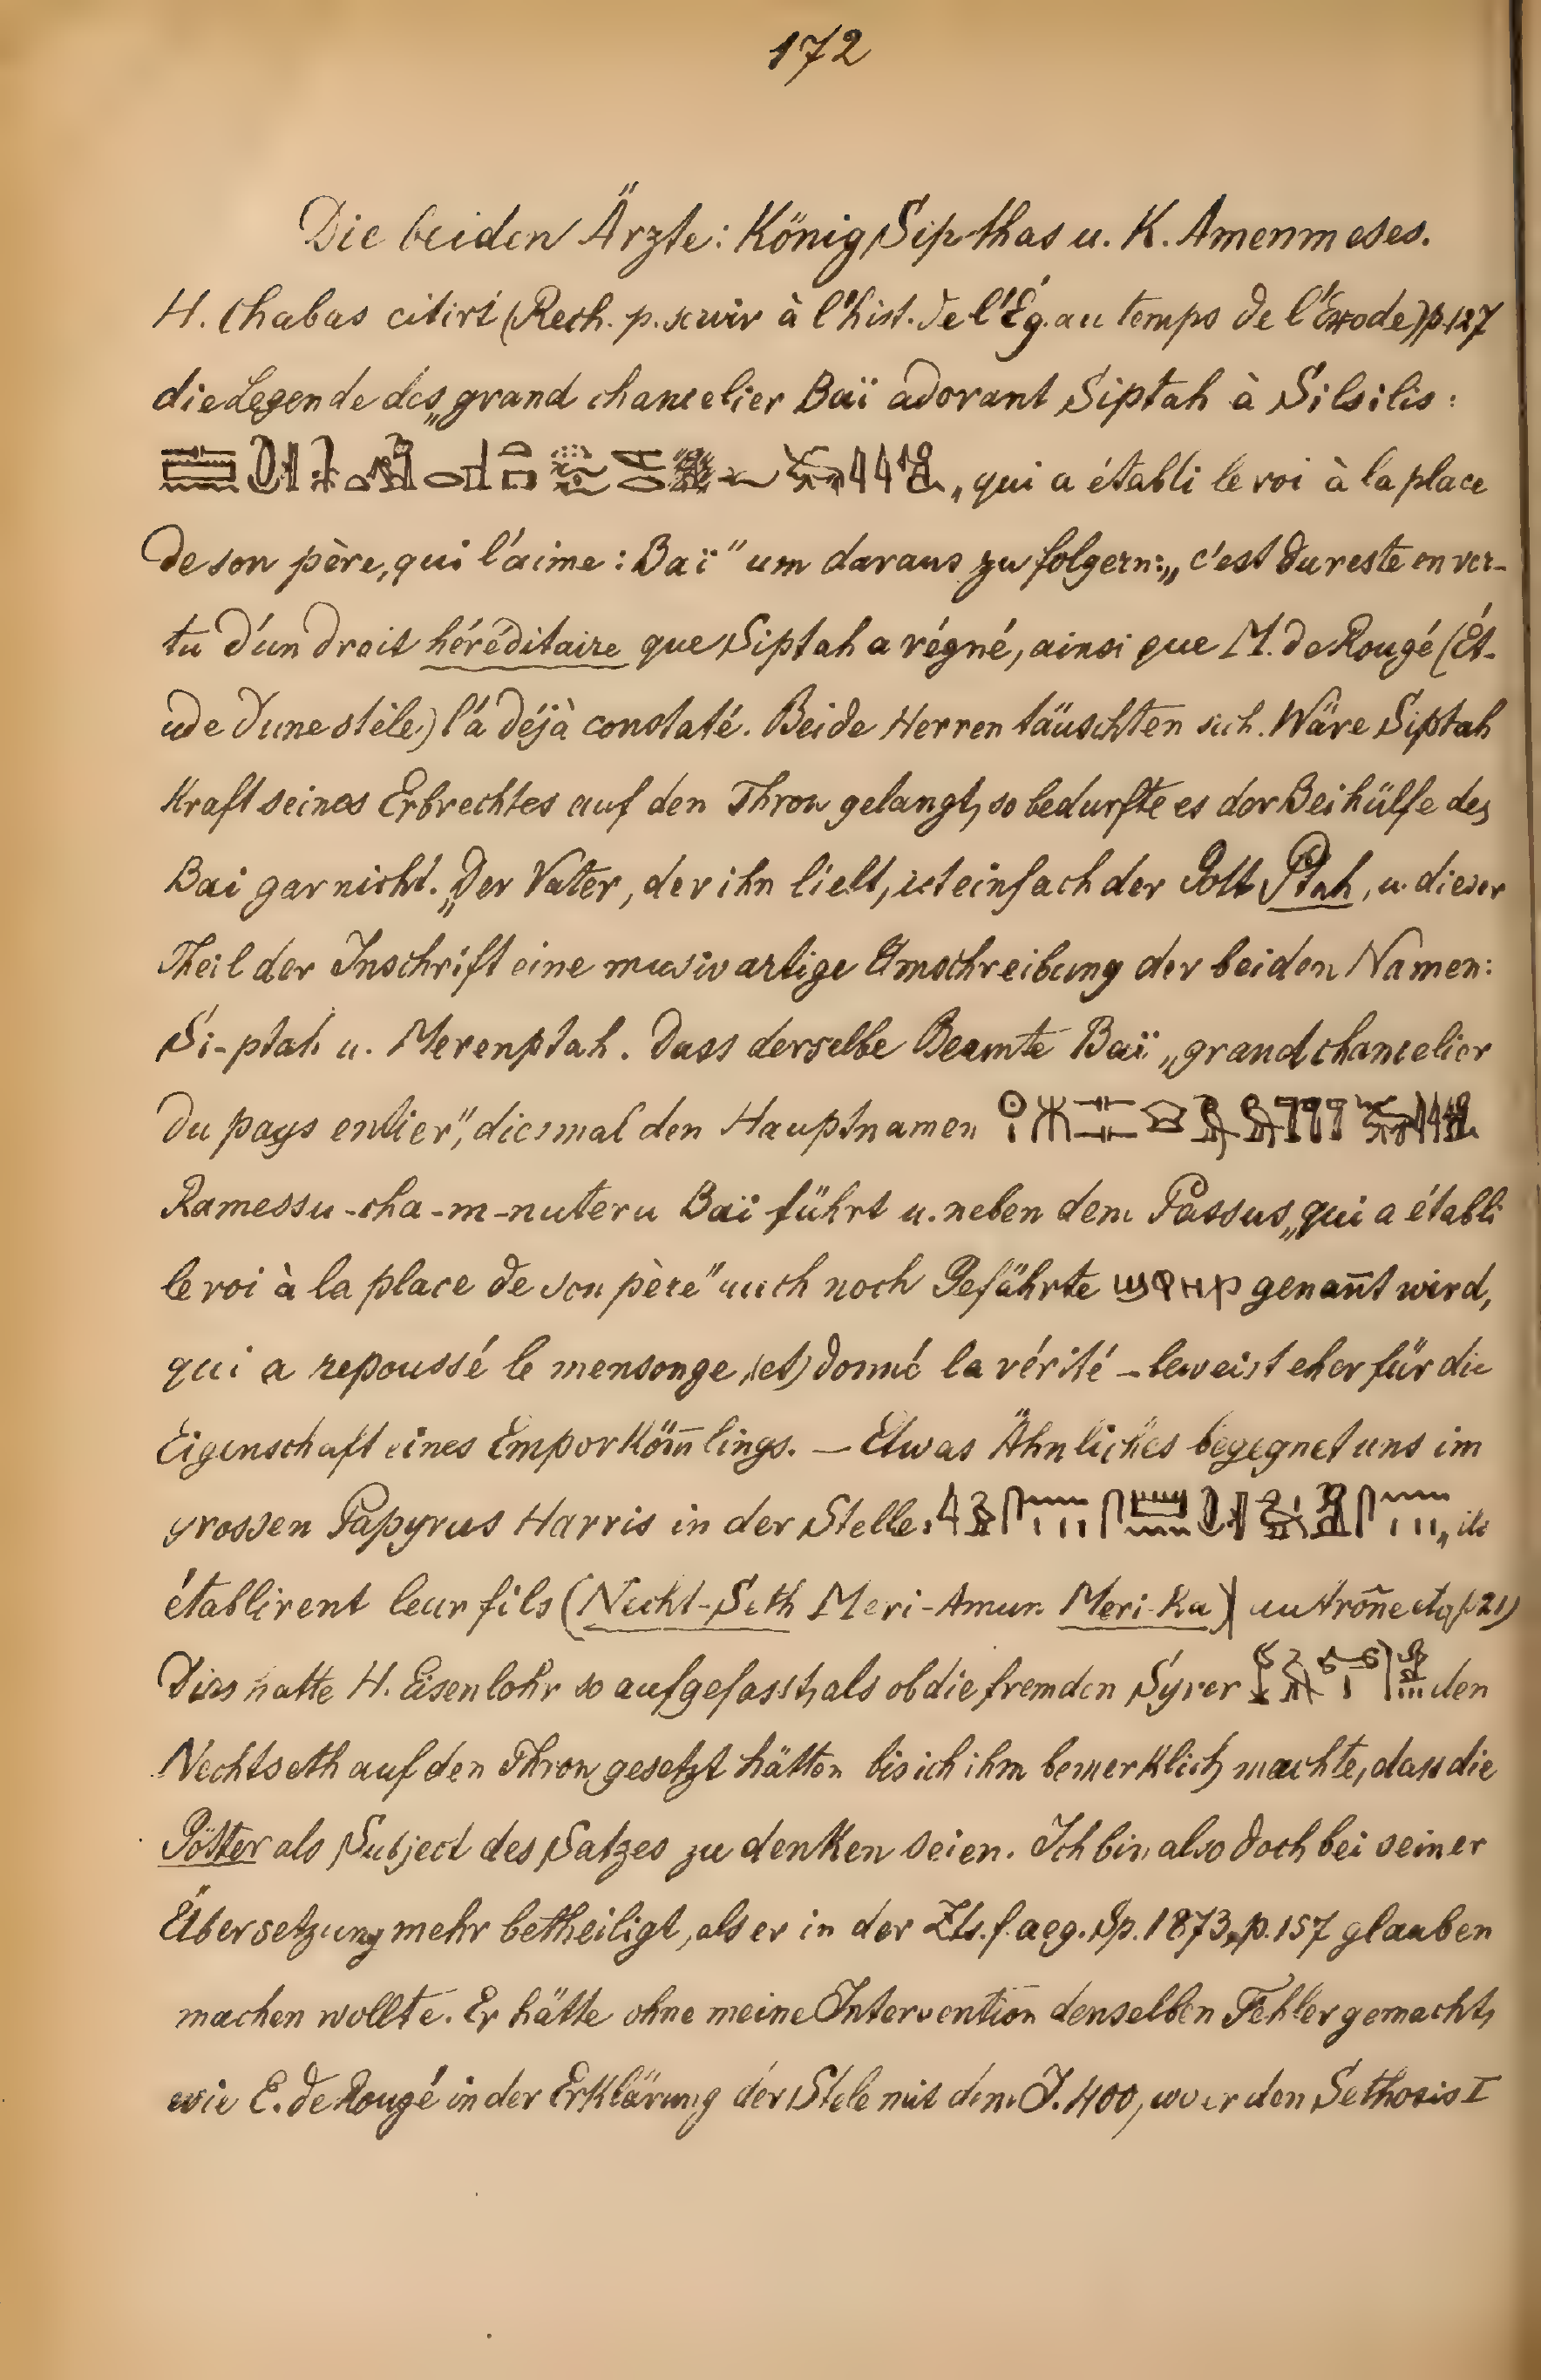 172
Die beiden Ärzte: König Sipthas u. K. Amenmeses.
H. Chabas citirt (Rech. p. servir à l'hist. de l'Ég. au temps de l'Exode) p. 127
die Legende des „grand chancelier Baï adorant Siptah à Silsilis:
„qui a établi le roi à la place
de son père, qui l'aime: Baï" um daraus zu folgern: „c'est du reste en ver-
tu d'un droit héréditaire que Siptah a régné, ainsi que M. de Rougé (Ét-
ude d'une stèle) l'a déjà constaté. Beide Herren täuschten sich. Wäre Siptah
Kraft seines Erbrechtes auf den Thron gelangt, so bedurfte es der Beihülfe des
Bai gar nicht. „Der Vater, der ihn liebt, ist einfach der Gott Ptah, u. dieser
Theil der Inschrift eine musivartige Umschreibung der beiden Namen:
Si-ptah u. Merenptah. Dass derselbe Beamte Baï „grand chancelier
du pays entier", diesmal den Hauptnamen
Ramessu-cha-m-nuteru Baï führt u. neben dem Passus „qui a établi
le roi à la place de son père" auch noch Gefährte genañt wird,
qui a repoussé le mensonge, (et) donné la vérité – beweist eher für die
Eigenschaft eines Emporköm̄lings. — Etwas Ähnliches begegnet uns im
grossen Papyrus Harris in der Stelle: „ils
établirent leur fils (Necht-Seth Meri-Amun Meri-Ra) au trône etc (p. 21)
Dies hatte H. Eisenlohr so aufgefasst, als ob die fremden Syrer den
Nechtseth auf den Thron gesetzt hätten bis ich ihm bemerklich machte, dass die
Götter als Subject des Satzes zu denken seien. Ich bin also doch bei seiner
Übersetzung mehr betheiligt, als er in der Zts. f. aeg. Sp. 1873, p. 157 glauben
machen wollte. Er hätte ohne meine Intervention denselben Fehler gemacht,
wie E. de Rougé in der Erklärung der Stele mit dem J. 400, wo er den Sethosis I